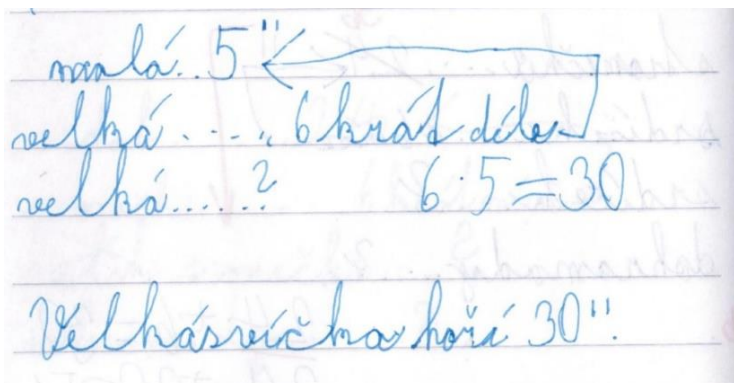 malá.. 5"
velká ..... 6 krát déle
velká.....? 6·5=30
Velká svíčka hoří 30".